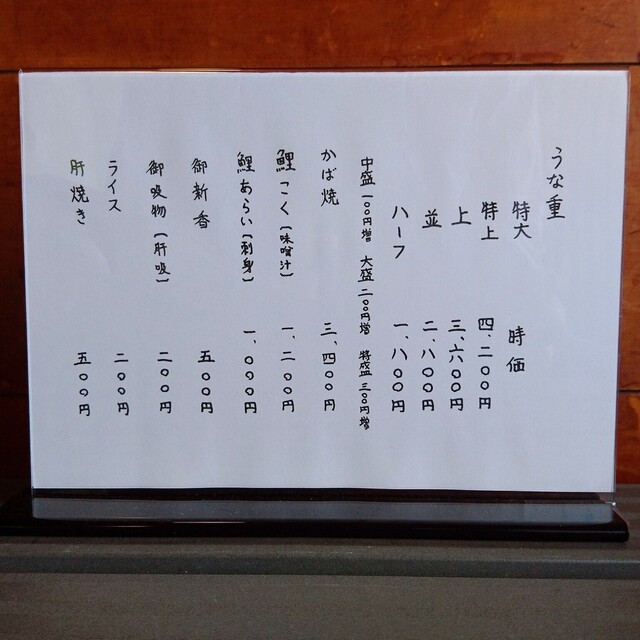 うな重
特大 時価
特上 四、二〇〇円
上 三、六〇〇円
並 二、八〇〇円
ハーフ 一、八〇〇円
中盛一〇〇円増 大盛二〇〇円増 特盛三〇〇円増
かば焼 三、四〇〇円
鯉こく(味噌汁) 一、二〇〇円
鯉あらい(刺身) 一、〇〇〇円
御新香 五〇〇円
御吸物(肝吸) 二〇〇円
ライス 二〇〇円
肝焼き 五〇〇円